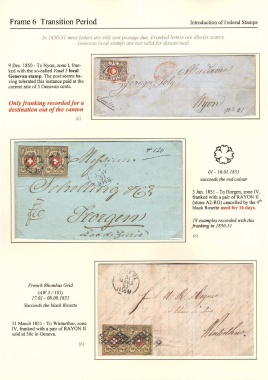 Frame 6 Transition Period
Introduction of Federal Stamps
In 1850-51 most letters are still sent postage due. Franked letters are always scarce.
Genevan local stamps are not valid for distant mail.
9 Dec. 1850 - To Nyon, zone I, fran-
ked with the so-called Vaud 5 local
Genevan stamp. The post seems ha-
ving tolerated this instance paid at the
correct rate of 5 Geneva cents.
Only franking recorded for a
destination out of the canton
Nyon
Messieurs
Horgen
01 - 16.01.1851
succeeds the red colour
3 Jan. 1851 - To Horgen, zone IV,
franked with a pair of RAYON II
(stone A2-RO) cancelled by the 4th
black Rosette used for 16 days.
18 examples recorded with this
franking in 1850-51
French Rhombus Grid
(AW 3 / 103)
17.01 - 08.08.1851
Succeeds the black Rosette
31 March 1851 - To Winterthur, zone
IV, franked with a pair of RAYON II
sold at 30c in Geneva.
Winterthur